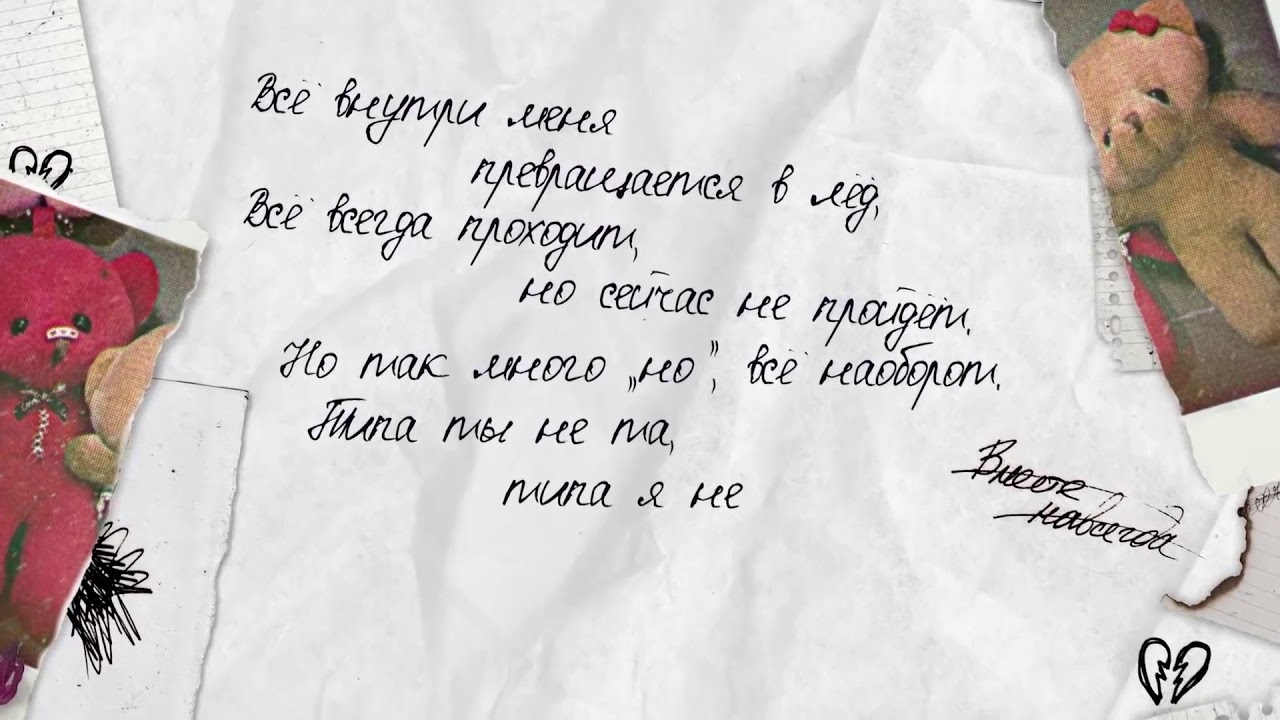 Всё внутри меня
превращается в лёд,
Всё всегда проходит,
но сейчас не пройдёт.
Но так много „но”, всё наоборот.
Типа ты не та,
типа я не
Вместе
навсегда